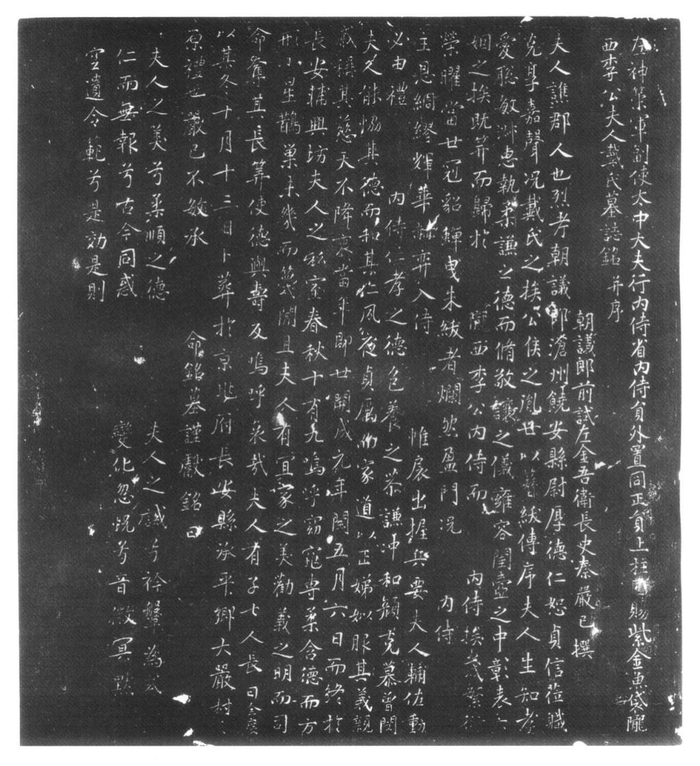 左神策軍副使太中大夫行內侍省內侍員外置同正員上柱國賜紫金魚袋隴
西李公夫人戴氏墓誌銘 并序
朝議郎前試左金吾衛長史秦嚴已撰
夫人譙郡人也烈考朝議郎滄州饒安縣尉厚德仁恕貞信莅職
克阜嘉聲況戴氏之族公侯之胤世以簪紱傳序夫人生知孝
愛聡敏淑惠執柔謙之德而脩敬讓之儀雍容閨壼之中彰表
姻之族既笄而歸於 隴西李公內侍而 內侍族茂繁
榮曜當世冠貂蟬曳朱紱者爛然盈門況 內侍
主恩綢繆輝華 弈入侍 帷扆出握兵要夫人輔佐動
必由禮 內侍仁孝之德色養之恭謙冲和順克慕曾閔
夫人能恊其德而和其仁風 貞厲而家道以正娣姒服其義親
戚 其慈天不降衷當年即世開成元年閏五月六日而終於
長安輔興坊夫人之私室春秋十有九嗚呼窈窕專柔含德而方
小星鵲巢未幾而 且夫人有宜家之美勸義之明而司
命奪其長筭使德與壽反嗚呼哀哉夫人有子七人長曰
以其冬十月十三日卜葬於京兆府長安縣承平鄉大嚴村
禮也嚴已不敏承 命銘墓謹獻銘曰
夫人之美兮柔順之德 夫人之 兮衿鞶為式
仁而無報兮古今同惑 變化忽恍兮音徽冥默
空遺令範兮是効是則